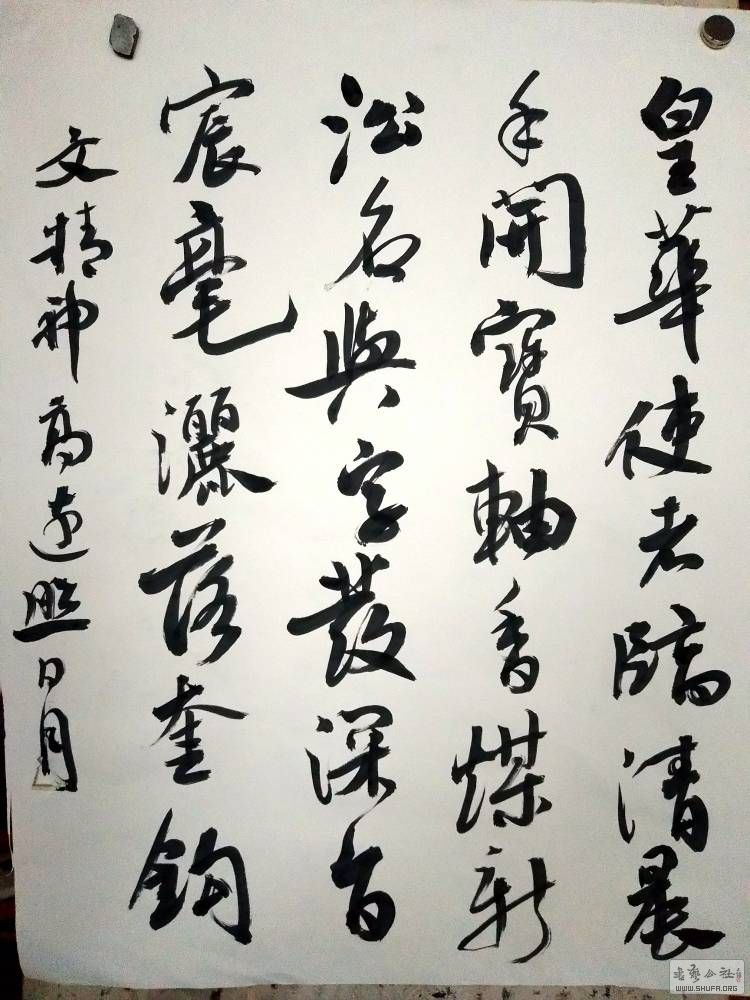 皇華使老臨清晨
手開寶軸香煤新
訟名與字發深旨
宸毫灑落奎鈎
文精神高遠照日月
書藝公社
WWW.SHUFA.ORG